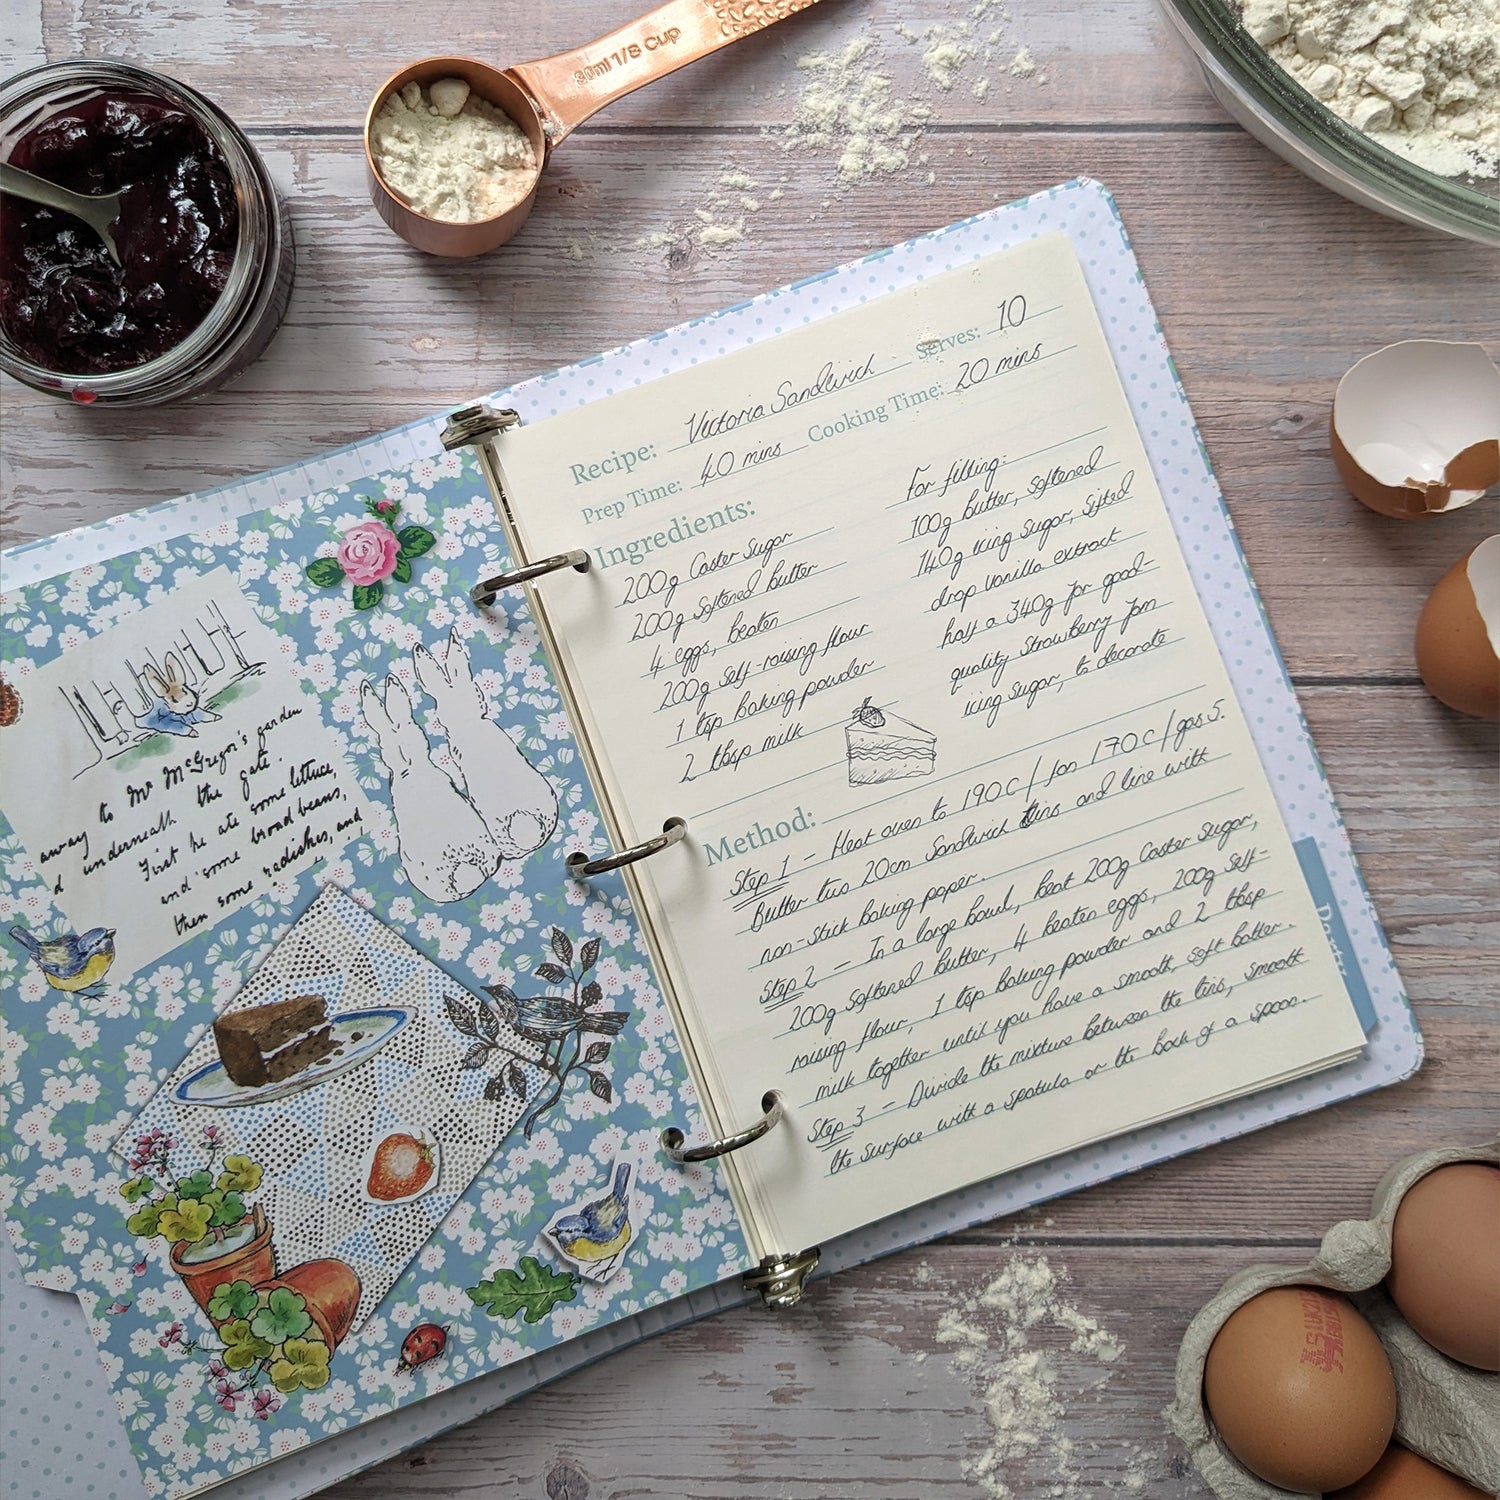 30ml 1/8 CUP
Mr McGregor's garden
away to
d underneath the gate.
First he ate some lettuce,
and some broad beans,
then some radishes, and
Recipe: Victoria Sandwich Serves: 10
Prep Time: 40 mins Cooking Time: 20 mins
Ingredients:
200g Caster Sugar
200g Softened butter
4 eggs, beaten
200g Self-raising flour
1 tsp baking powder
2 tbsp milk
For filling:
100g butter, softened
140g icing sugar, sifted
drop vanilla extract
half a 340g jar good-
quality Strawberry Jam
icing sugar, to decorate
Method:
Step 1 - Heat oven to 190C / fan 170C / gas 5.
Butter two 20cm Sandwich tins and line with
non-stick baking paper.
Step 2 - In a large bowl, beat 200g Caster Sugar,
200g Softened butter, 4 beaten eggs, 200g Self-
raising flour, 1 tsp baking powder and 2 tbsp
milk together until you have a smooth, soft batter.
Step 3 - Divide the mixture between the tins, smooth
the surface with a spatula or the back of a spoon.